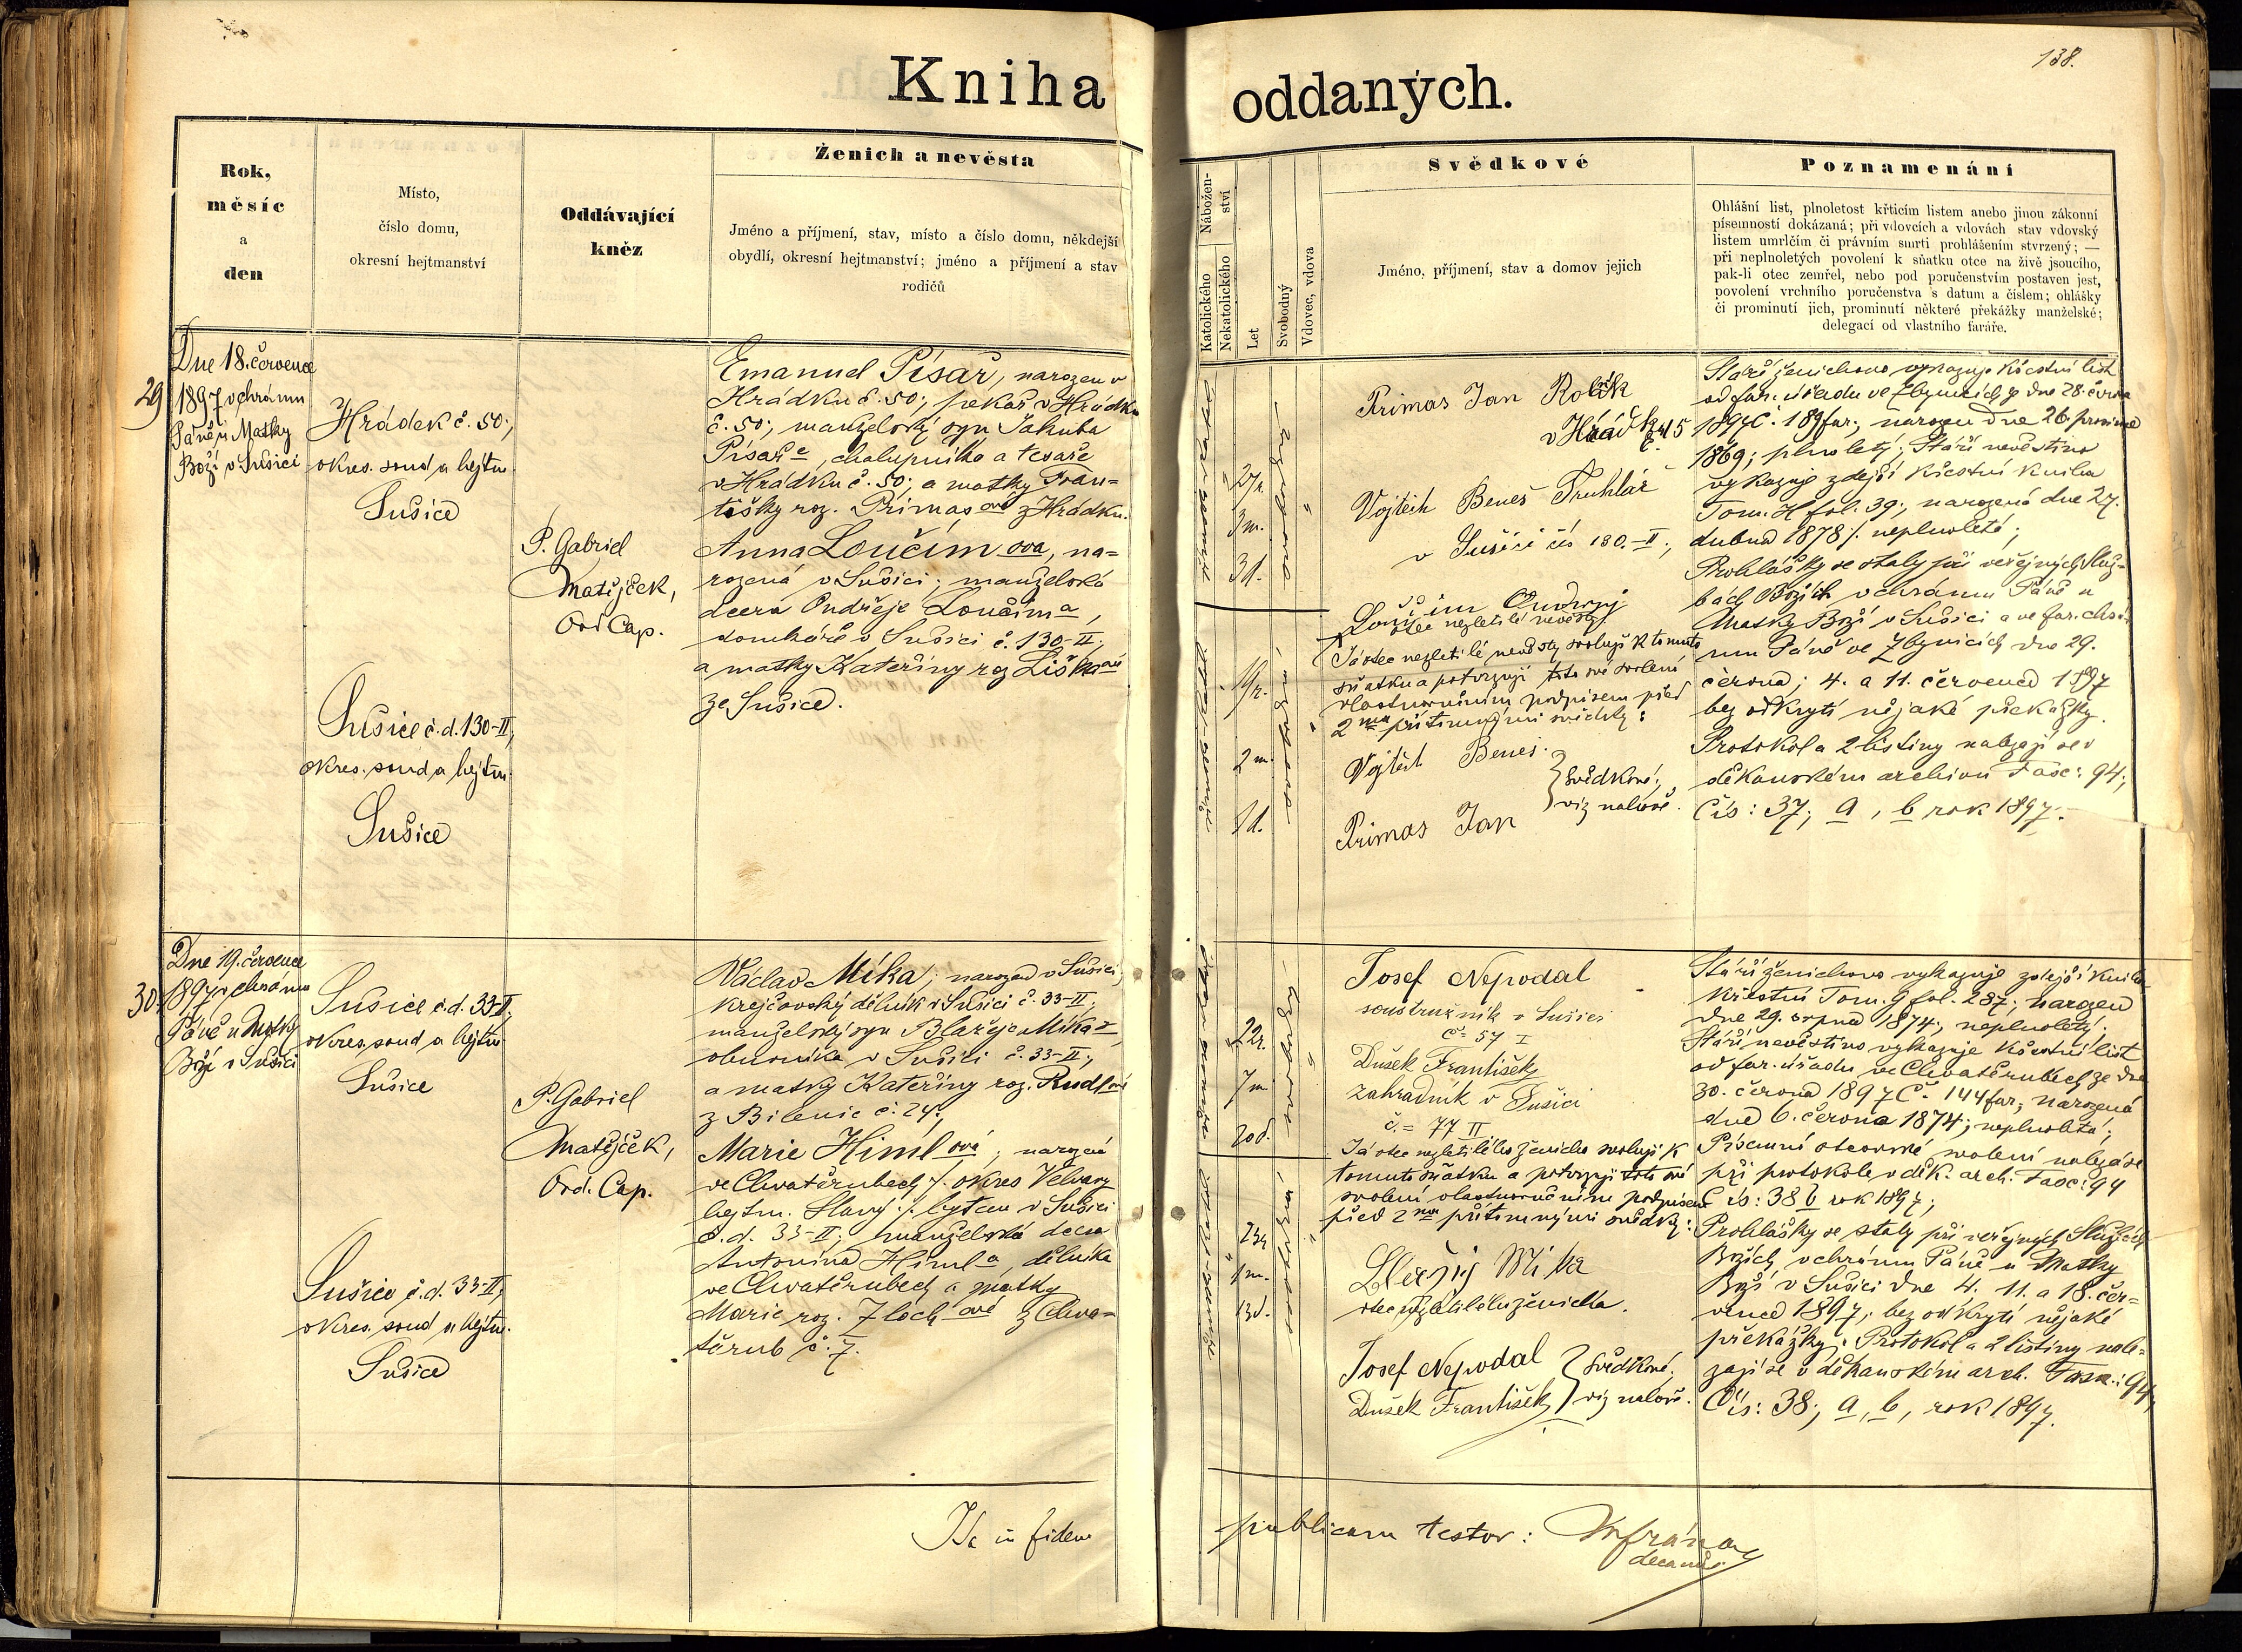 138.
Kniha oddaných.
Rok,
měsíc
a
den
Místo,
číslo domu,
okresní hejtmanství
Oddávající
kněz
Ženich a nevěsta
Jméno a příjmení, stav, místo a číslo domu, někdejší
obydlí, okresní hejtmanství; jméno a příjmení a stav
rodičů
Nábožen-
ství
Katolického
Nekatolického
Let
Svobodný
Vdovec, vdova
Svědkové
Jméno, příjmení, stav a domov jejich
Poznamenání
Ohlášní list, plnoletost křticím listem anebo jinou zákonní
písemností dokázaná; při vdovcích a vdovách stav vdovský
listem umrlčím či právním smrti prohlášením stvrzený; —
při neplnoletých povolení k sňatku otce na živě jsoucího,
pak-li otec zemřel, nebo pod poručenstvím postaven jest,
povolení vrchního poručenstva s datum a číslem; ohlášky
či prominutí jich, prominutí některé překážky manželské;
delegací od vlastního faráře.
29
Dne 18. července
1897 v chrámu
Páně u Matky
Boží v Sušici
Hrádek č. 50;
okres. soud a hejtm.
Sušice
Sušice č. d. 130-II;
okres. soud a hejtm.
Sušice
P. Gabriel
Matějček,
Ord. Cap.
Emanuel Písař, narozen v
Hrádku č. 50; pekař v Hrádku
č. 50; manželský syn Jakuba
Písaře, chalupníka a tesaře
v Hrádku č. 50; a matky Fran-
tišky roz. Primasové z Hrádku.
Anna Loučímova, na-
rozená v Sušici; manželská
dcera Ondřeje Loučíma,
domkáře v Sušici č. 130-II;
a matky Kateřiny roz. Liškové
ze Sušice.
27 r.
3 m.
19 r.
2 m.
Primas Jan Rolník
v Hrádku č. 15
Vojtěch Beneš Truhlář
v Sušici čís 130.-II;
Loučim Ondřej
otec nezletilé nevěsty
Já otec nezletilé nevěsty svoluji k tomuto
sňatku a potvrzuji toto své svolení
vlastnoručním podpisem před
2ma přítomnými svědky:
Vojtěch Beneš.
Primas Jan
svědkové;
viz nahoře.
Stáří ženichovo vykazuje křestní list
od far. úřadu ve Zbynicích ze dne 28. června
1897 Č. 189 far; narozen dne 26. prosince
1869; plnoletý; Stáří nevěstino
vykazuje zdejší křestní kniha
Tom. H fol. 39; narozená dne 27.
dubna 1878 /. neplnoletá;
Prohlášky se staly při veřejných Služ-
bách Božích v chrámu Páně u
Matky Boží v Sušici a ve far. chrá-
mu Páně ve Zbynicích dne 29.
června; 4. a 11. července 1897
bez odkrytí nějaké překážky.
Protokol a 2 listiny nalezají se v
děkanském archivu Fasc: 94;
Čís: 37; a, b rok 1897.
30.
Dne 19. července
1897 v chrámu
Páně u Matky
Boží v Sušici
Sušice č. d. 33-II;
okres. soud a hejtm.
Sušice
Sušice č. d. 33-II;
okres. soud a hejtm.
Sušice
P. Gabriel
Matějček,
Ord. Cap.
Václav Míka; narozen v Sušici;
krejčovský dělník v Sušici č. 33-II;
manželský syn Blažeje Míka,
obuvníka v Sušici č. 33-II;
a matky Kateřiny roz. Rudlové
z Bilenic č. 24;
Marie Himlová; narozená
ve Chvatěrubech /. okres Velvary
hejtm. Slaný ./. bytem v Sušici
č. d. 33-II; manželská dcera
Antonína Himla, dělníka
ve Chvatěrubech a matky
Marie roz. Zlochové z Chva-
těrub č. 7.
22 r.
7 m.
20 d.
1 m.
13 d.
Josef Nepodal
soustružník v Sušici
č= 57 I
Dušek František
zahradník v Sušici
č.= 77 II
Já otec nezletilého ženicha svoluji k
tomuto sňatku a potvrzuji toto své
svolení vlastnoručním podpisem
před 2ma přítomnými svědky:
Blažej Míka
otec nezletilého ženicha.
Josef Nepodal
Dušek František
svědkové;
viz nahoře.
Stáří ženichovo vykazuje zdejší kniha
křestní Tom. G fol. 287; narozen
dne 29. srpna 1874; neplnoletý;
Stáří nevěstino vykazuje křestní list
od far. úřadu ve Chvatěrubech ze dne
30. června 1897 Č. 144 far; narozená
dne 6. června 1874; neplnoletá;
Písemné otcovské svolení nalezá se
při protokole v děk. arch. Fasc: 94
Čís: 38 b rok 1897;
Prohlášky se staly při veřejných Službách
Božích v chrámu Páně u Matky
Boží v Sušici dne 4. 11. a 18. čer-
vence 1897; bez odkrytí nějaké
překážky. Protokol a 2 listiny nale-
zají se v děkanském arch. Fasc.: 94,
Čís: 38; a, b, rok 1897.
Ita in fidem publicam testor:
decanus